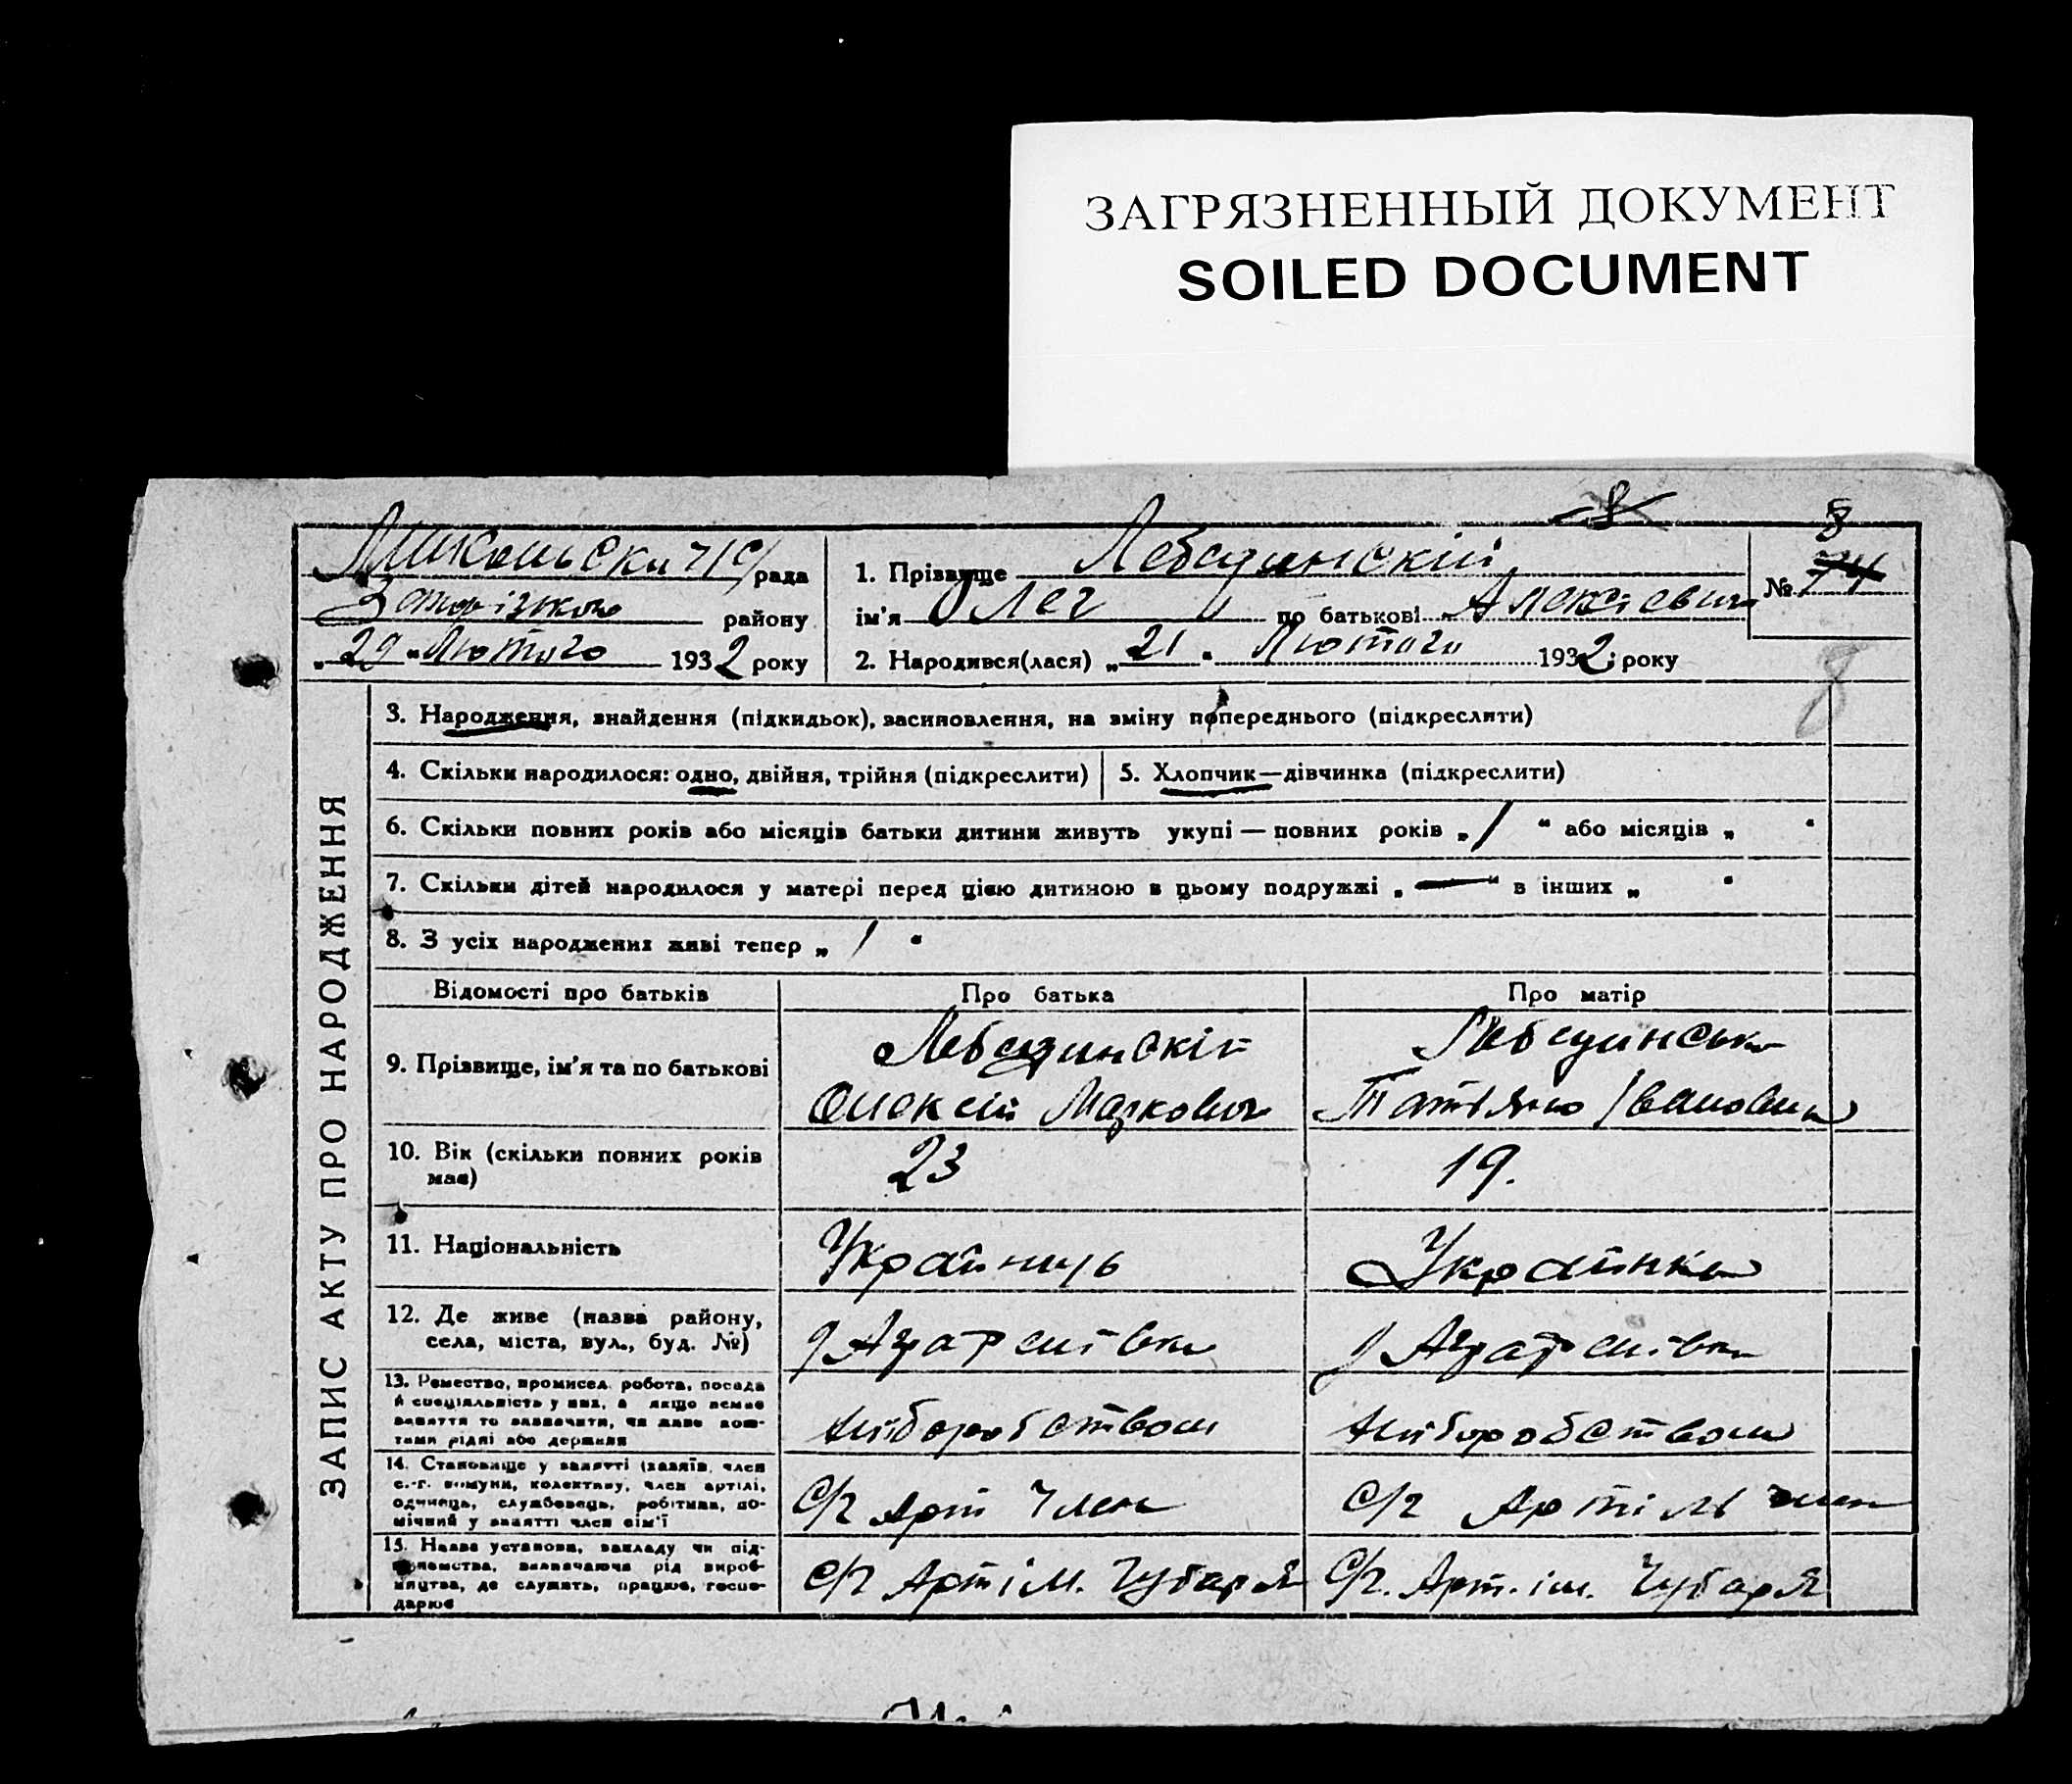 ЗАГРЯЗНЕННЫЙ ДОКУМЕНТ
SOILED DOCUMENT
8
8
рада
Запорізького району
„29“ Лютого 1932 року
1. Прізвище Лебединскій
ім'я Олег по батькові Алексієвич
№ 74
2. Народився(лася) „21“ Лютого 1932 року
8
ЗАПИС АКТУ ПРО НАРОДЖЕННЯ
3. Народження, знайдення (підкидьок), засиновлення, на зміну попереднього (підкреслити)
4. Скільки народилося: одно, двійня, трійня (підкреслити)
5. Хлопчик—дівчинка (підкреслити)
6. Скільки повних років або місяців батьки дитини живуть укупі — повних років „1“ або місяців „ “
7. Скільки дітей народилося у матері перед цією дитиною в цьому подружжі „—“ в інших „ “
8. З усіх народжених живі тепер „1“
Відомості про батьків Про батька Про матір
9. Прізвище, ім'я та по батькові
Лебединскій
Олексій Маркович
Лебединська
Татіяна Івановна
10. Вік (скільки повних років має)
23
19.
11. Національність
Українець
Українка
12. Де живе (назва району,
села, міста, вул., буд. №)
13. Ремество, промисел, робота, посада
й спеціяльність у них, а якщо немає
заняття то зазначити, чи живе кош-
тами рідні або держави
хліборобством
хліборобством
14. Становище у занятті (хазяїн, член
с.-г. комуни, колективу, член артілі,
одинець, службовець, робітник, по-
мічний у занятті член сім'ї
С/г Арт Член
С/г Артіль член
15. Назва установи, закладу чи під-
приємства, визначаючи рід вироб-
ництва, де служить, працює, госпо-
дарює
С/г Арт ім. Чубаря
С/г. Арт. ім. Чубаря